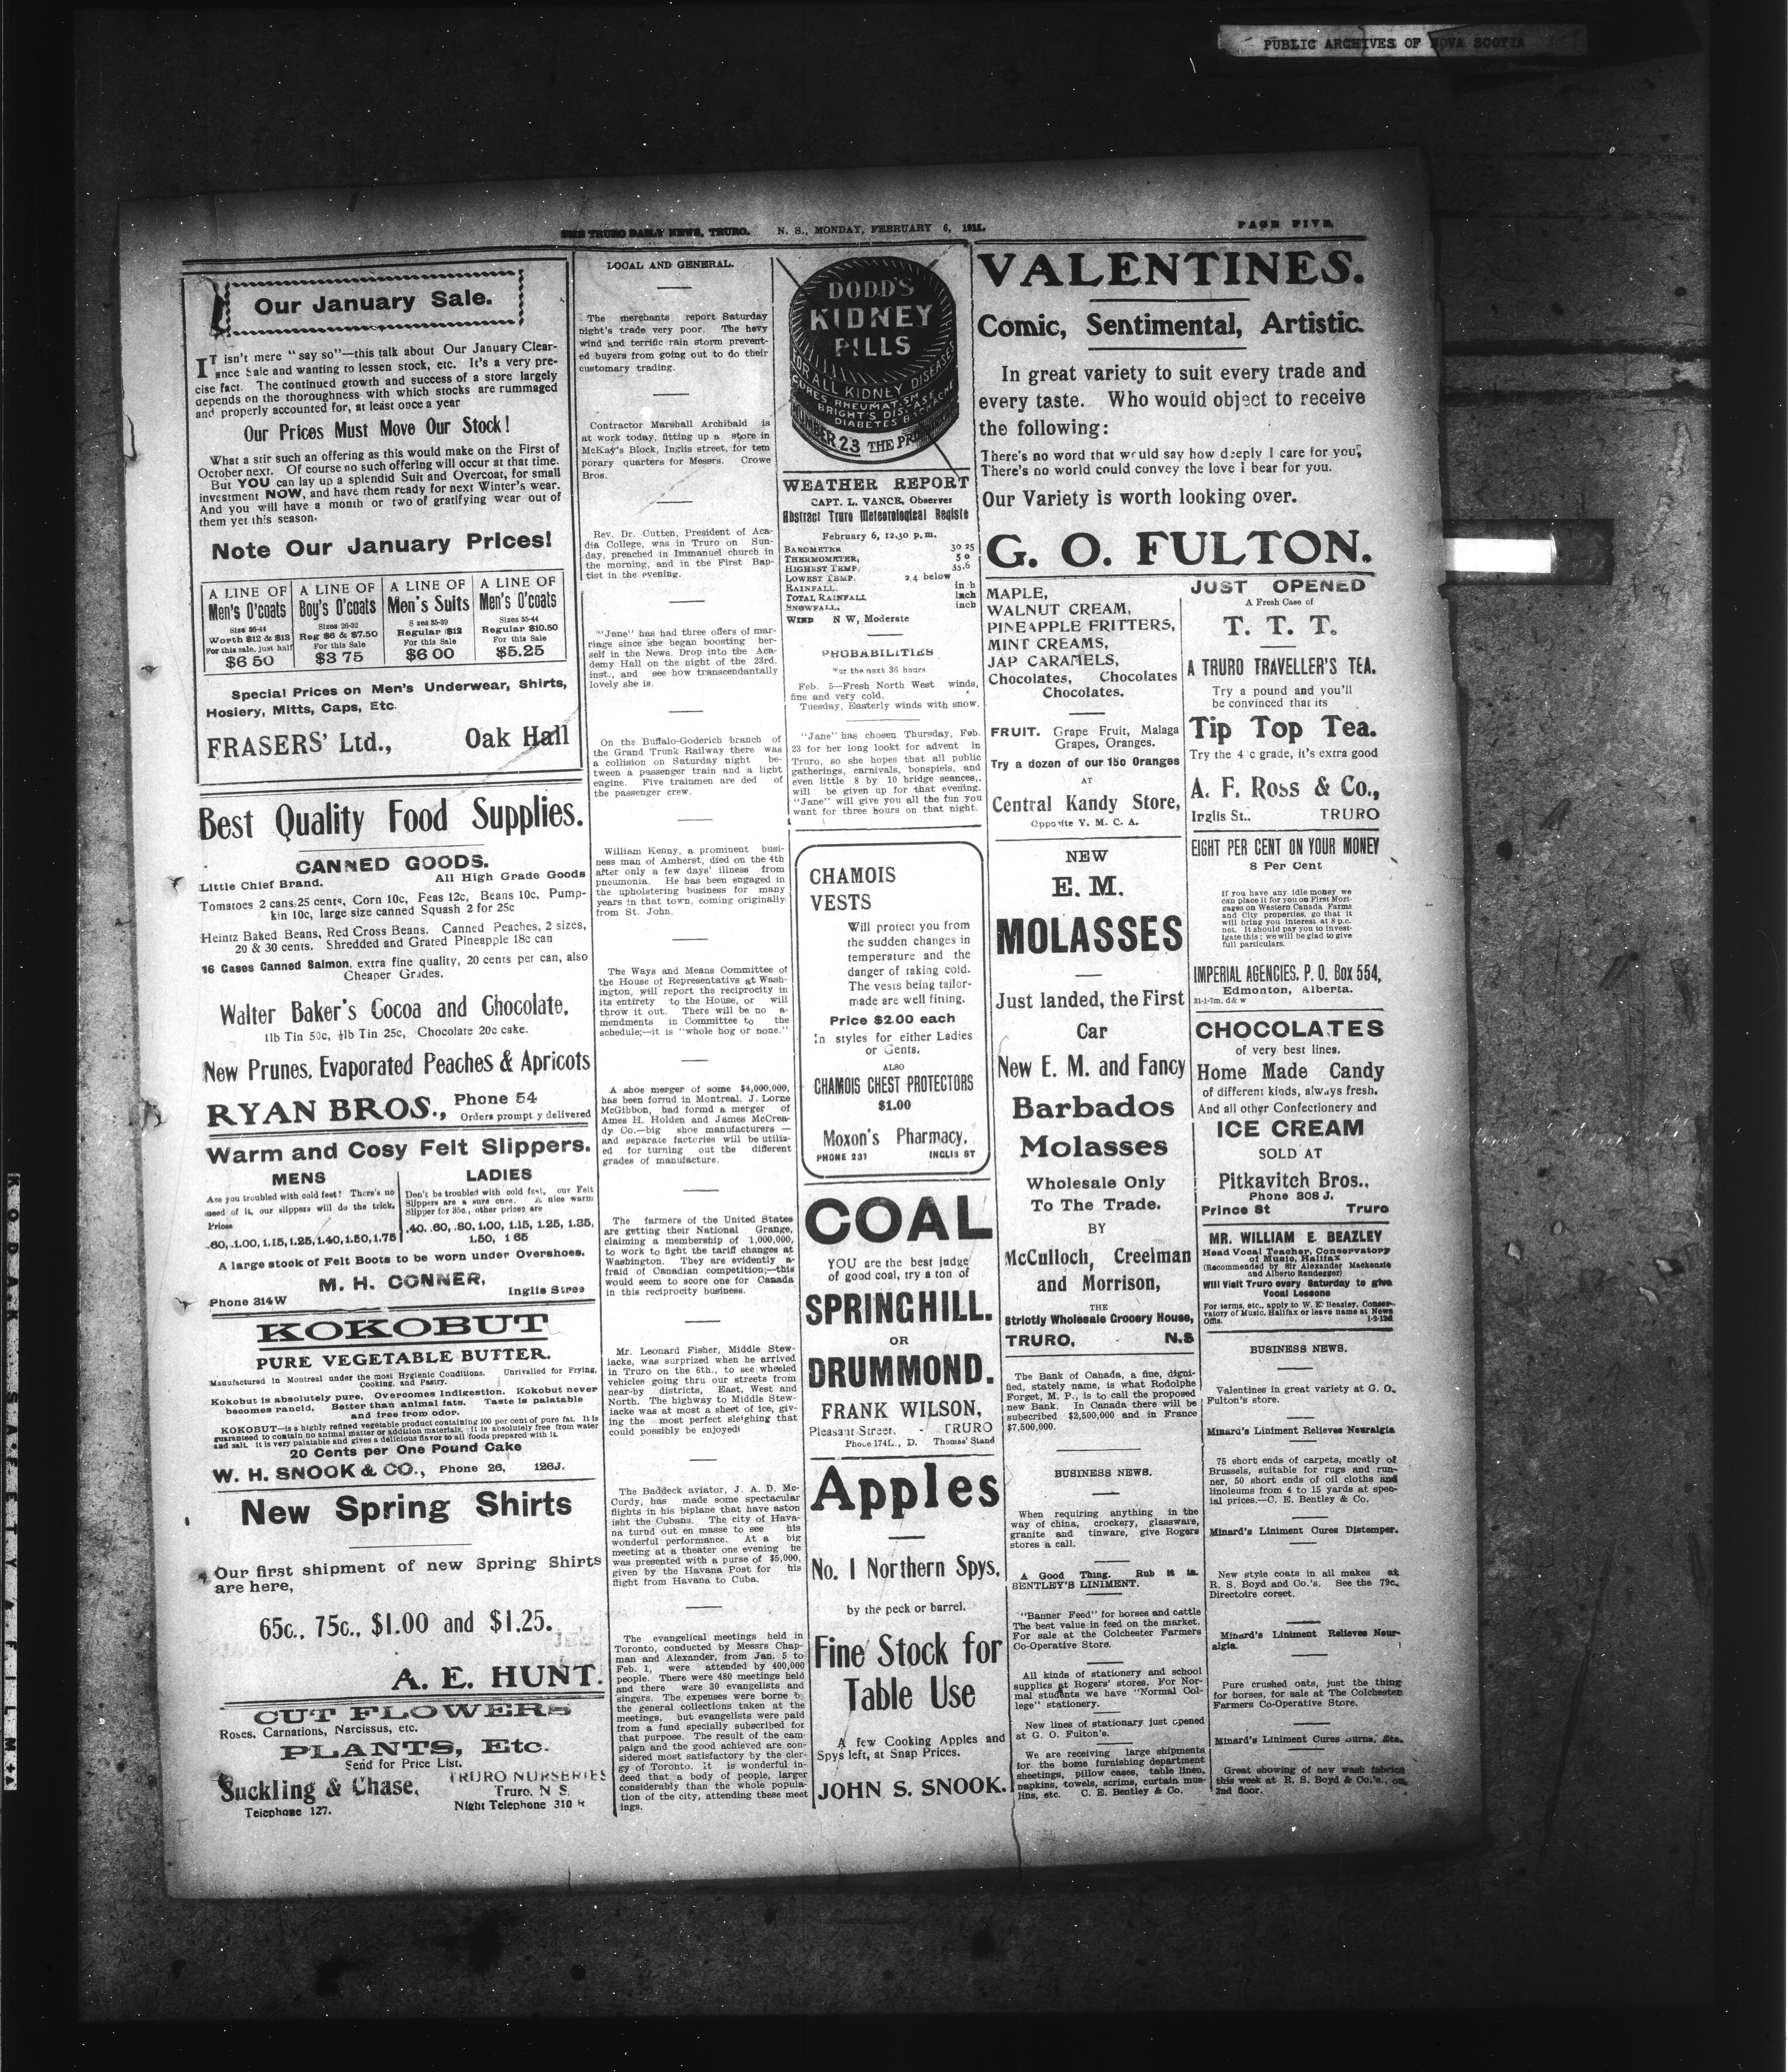 PUBLIC ARCHIVES OF NOVA SCOTIA
THE TRURO DAILY NEWS, TRURO. N. S., MONDAY, FEBRUARY 6, 1911.
PAGE FIVE.
Our January Sale.
IT isn't mere "say so"—this talk about Our January Clear-
ance Sale and wanting to lessen stock, etc. It's a very pre-
cise fact. The continued growth and success of a store largely
depends on the thoroughness with which stocks are rummaged
and properly accounted for, at least once a year
Our Prices Must Move Our Stock!
What a stir such an offering as this would make on the First of
October next. Of course no such offering will occur at that time.
But YOU can lay up a splendid Suit and Overcoat, for small
investment NOW, and have them ready for next Winter's wear.
And you will have a month or two of gratifying wear out of
them yet this season.
Note Our January Prices!
A LINE OF
Men's O'coats
Size 36-44
Worth $12 & $13
For this sale, just half
$6 50
A LINE OF
Boy's O'coats
Sizes 26-32
Reg $6 & $7.50
For this Sale
$3 75
A LINE OF
Men's Suits
S zes 35-39
Regular $12
For this Sale
$6 00
A LINE OF
Men's O'coats
Sizes 35-44
Regular $10.50
For this Sale
$5.25
Special Prices on Men's Underwear, Shirts,
Hosiery, Mitts, Caps, Etc.
FRASERS' Ltd., Oak Hall
Best Quality Food Supplies.
CANNED GOODS.
Little Chief Brand. All High Grade Goods
Tomatoes 2 cans 25 cents, Corn 10c, Peas 12c, Beans 10c, Pump-
kin 10c, large size canned Squash 2 for 25c
Heintz Baked Beans, Red Cross Beans. Canned Peaches, 2 sizes,
20 & 30 cents. Shredded and Grated Pineapple 18c can
16 Cases Canned Salmon, extra fine quality, 20 cents per can, also
Cheaper Grades.
Walter Baker's Cocoa and Chocolate,
1lb Tin 50c, ½lb Tin 25c, Chocolate 20c cake.
New Prunes, Evaporated Peaches & Apricots
RYAN BROS., Phone 54
Orders prompt y delivered
Warm and Cosy Felt Slippers.
MENS
Are you troubled with cold feet? There's no
need of it, our slippers will do the trick.
Prices
.60, .1.00, 1.15, 1.25, 1.40, 1.50, 1.75
LADIES
Don't be troubled with cold feet, our Felt
Slippers are a sure cure. A nice warm
Slipper for 35c., other prices are
.40. .60, .80, 1.00, 1.15, 1.25, 1.35,
1.50, 1 65
A large stock of Felt Boots to be worn under Overshoes.
M. H. CONNER,
Phone 314W Inglis Stree
KOKOBUT
PURE VEGETABLE BUTTER.
Manufactured in Montreal under the most Hygienic Conditions. Unrivalled for Frying,
Cooking, and Pastry.
Kokobut is absolutely pure, Overcomes Indigestion. Kokobut never
becomes rancid. Better than animal fats. Taste is palatable
and free from odor.
KOKOBUT—is a highly refined vegetable product containing 100 per cent of pure fat. It is
guaranteed to contain no animal matter or addition materials. It is absolutely free from water
and salt. It is very palatable and gives a delicious flavor to all foods prepared with it.
20 Cents per One Pound Cake
W. H. SNOOK & CO., Phone 26, 126J.
New Spring Shirts
Our first shipment of new Spring Shirts
are here,
65c., 75c., $1.00 and $1.25.
A. E. HUNT.
CUT FLOWERS
Roses, Carnations, Narcissus, etc.
PLANTS, Etc.
Send for Price List.
Suckling & Chase, TRURO NURSERIES
Truro, N S.
Telephone 127. Night Telephone 310
LOCAL AND GENERAL.
The merchants report Saturday
night's trade very poor. The hevy
wind and terrific rain storm prevent-
ed buyers from going out to do their
customary trading.
Contractor Marshall Archibald is
at work today, fitting up a store in
McKay's Block, Inglis street, for tem
porary quarters for Messrs. Crowe
Bros.
Rev. Dr. Cutten, President of Aca-
dia College, was in Truro on Sun-
day, preached in Immanuel church in
the morning, and in the First Bap-
tist in the evening.
"Jane" has had three offers of mar-
riage since she began boosting her-
self in the News. Drop into the Aca-
demy Hall on the night of the 23rd.
inst., and see how transcendantally
lovely she is.
On the Buffalo-Goderich branch of
the Grand Trunk Railway there was
a collision on Saturday night be-
tween a passenger train and a light
engine. Five trainmen are ded of
the passenger crew.
William Kenny, a prominent busi-
ness man of Amherst, died on the 4th
after only a few days' illness from
pneumonia. He has been engaged in
the upholstering business for many
years in that town, coming originally
from St. John.
The Ways and Means Committee of
the House of Representativs at Wash-
ington, will report the reciprocity in
its entirety to the House, or will
throw it out. There will be no a-
mendments in Committee to the
schedule;—it is "whole hog or none."
A shoe merger of some $4,000,000,
has been formd in Montreal. J. Lorne
McGibbon, had formd a merger of
Ames H. Holden and James McCrea-
dy Co.—big shoe manufacturers —
and separate factories will be utiliz-
ed for turning out the different
grades of manufacture.
The farmers of the United States
are getting their National Grange,
claiming a membership of 1,000,000,
to work to fight the tariff changes at
Washington. They are evidently a-
fraid of Canadian competition;—this
would seem to score one for Canada
in this reciprocity business.
Mr. Leonard Fisher, Middle Stew-
iacke, was surprized when he arrived
in Truro on the 6th., to see wheeled
vehicles going thru our streets from
near-by districts, East, West and
North. The highway to Middle Stew-
iacke was at most a sheet of ice, giv-
ing the most perfect sleighing that
could possibly be enjoyed!
The Baddeck aviator, J. A. D. Mc-
Curdy, has made some spectacular
flights in his biplane that have aston
isht the Cubans. The city of Hava-
na turnd out en masse to see his
wonderful performance. At a big
meeting at a theater one evening he
was presented with a purse of $5,000,
given by the Havana Post for his
flight from Havana to Cuba.
The evangelical meetings held in
Toronto, conducted by Messrs Chap-
man and Alexander, from Jan. 5 to
Feb. 1, were attended by 400,000
people. There were 480 meetings held
and there were 30 evangelists and
singers. The expenses were borne by
the general collections taken at the
meetings, but evangelists were paid
from a fund specially subscribed for
that purpose. The result of the cam-
paign and the good achieved are con-
sidered most satisfactory by the cler-
gy of Toronto. It is wonderful in-
deed that a body of people, larger
considerably than the whole popula-
tion of the city, attending these meet
ings.
DODD'S
KIDNEY
PILLS
FOR ALL KIDNEY DISEASES
CURES RHEUMATISM
BRIGHT'S DISEASE
DIABETES BACKACHE
NUMBER 23 THE
WEATHER REPORT
CAPT. L. VANCE, Observer
Abstract Truro Meteorological Registe
February 6, 12.30 p. m.
BAROMETER 30 25
THERMOMETER, 5 0
HIGHEST TEMP. 35.6
LOWEST TEMP. 2.4 below
RAINFALL. in h
TOTAL RAINFALL inch
SNOWFALL, inch
WIND N W, Moderate
PROBABILITIES
For the next 36 hours
Feb. 5—Fresh North West winds,
fine and very cold.
Tuesday, Easterly winds with snow.
"Jane" has chosen Thursday, Feb.
23 for her long lookt for advent in
Truro, so she hopes that all public
gatherings, carnivals, bonspiels, and
even little 8 by 10 bridge seances,,
will be given up for that evening.
"Jane" will give you all the fun you
want for three hours on that night.
CHAMOIS
VESTS
Will protect you from
the sudden changes in
temperature and the
danger of taking cold.
The vests being tailor-
made are well fitting.
Price $2.00 each
In styles for either Ladies
or Gents.
ALSO
CHAMOIS CHEST PROTECTORS
$1.00
Moxon's Pharmacy,
PHONE 231 INGLIS ST
COAL
YOU are the best judge
of good coal, try a ton of
SPRINGHILL.
OR
DRUMMOND.
FRANK WILSON,
Pleasant Street. - TRURO
Phone 174L., D. Thomas' Stand
Apples
No. 1 Northern Spys,
by the peck or barrel.
Fine Stock for
Table Use
A few Cooking Apples and
Spys left, at Snap Prices.
JOHN S. SNOOK.
VALENTINES.
Comic, Sentimental, Artistic.
In great variety to suit every trade and
every taste. Who would object to receive
the following:
There's no word that would say how deeply I care for you;
There's no world could convey the love I bear for you.
Our Variety is worth looking over.
G. O. FULTON.
MAPLE,
WALNUT CREAM,
PINEAPPLE FRITTERS,
MINT CREAMS,
JAP CARAMELS,
Chocolates, Chocolates
Chocolates.
FRUIT. Grape Fruit, Malaga
Grapes, Oranges.
Try a dozen of our 15c Oranges
AT
Central Kandy Store,
Opposite Y. M. C. A.
NEW
E. M.
MOLASSES
Just landed, the First
Car
New E. M. and Fancy
Barbados
Molasses
Wholesale Only
To The Trade.
BY
McCulloch, Creelman
and Morrison,
THE
Strictly Wholesale Grocery House,
TRURO, N.S
The Bank of Canada, a fine, digni-
fied, stately name, is what Rodolphe
Forget, M. P., is to call the proposed
new Bank. In Canada there will be
subscribed $2,500,000 and in France
$7,500,000.
BUSINESS NEWS.
When requiring anything in the
way of china, crockery, glassware,
granite and tinware, give Rogers
stores a call.
A Good Thing. Rub it in.
BENTLEY'S LINIMENT.
"Banner Feed" for horses and cattle
The best value in feed on the market.
For sale at the Colchester Farmers
Co-Operative Store.
All kinds of stationery and school
supplies at Rogers' stores. For Nor-
mal students we have "Normal Col-
lege" stationery.
New lines of stationary just opened
at G. O. Fulton's.
We are receiving large shipments
for the home furnishing department
sheetings, pillow cases, table linen,
napkins, towels, scrims, curtain mus-
lins, etc. C. E. Bentley & Co.
JUST OPENED
A Fresh Case of
T. T. T.
A TRURO TRAVELLER'S TEA.
Try a pound and you'll
be convinced that its
Tip Top Tea.
Try the 4 c grade, it's extra good
A. F. Ross & Co.,
Inglis St.. TRURO
EIGHT PER CENT ON YOUR MONEY
8 Per Cent
If you have any idle money we
can place it for you on First Mort-
gages on Western Canada Farms
and City properties, go that it
will bring you interest at 8 p.c.
net. It should pay you to invest-
igate this; we will be glad to give
full particulars.
IMPERIAL AGENCIES, P. O. Box 554,
Edmonton, Alberta.
31-1-7m. d& w
CHOCOLATES
of very best lines.
Home Made Candy
of different kinds, always fresh.
And all other Confectionery and
ICE CREAM
SOLD AT
Pitkavitch Bros.,
Phone 308 J.
Prince St Truro
MR. WILLIAM E. BEAZLEY
Head Vocal Teacher, Conservatory
of Music, Halifax
(Recommended by Sir Alexander Mackenzie
and Alberto Randegger)
Will Visit Truro every Saturday to give
Vocal Lessons
For terms, etc., apply to W. E. Beazley, Conser-
vatory of Music, Halifax or leave name at News
BUSINESS NEWS.
Valentines in great variety at G. O.
Fulton's store.
Minard's Liniment Relieves Neuralgia
75 short ends of carpets, mostly of
Brussels, suitable for rugs and run-
ner, 50 short ends of oil cloths and
linoleums from 4 to 15 yards at spec-
ial prices.—C. E. Bentley & Co.
Minard's Liniment Cures Distemper.
New style coats in all makes at
R. S. Boyd and Co.'s. See the 79c.
Directoire corset.
Minard's Liniment Relieves Neur-
algia.
Pure crushed oats, just the thing
for horses, for sale at The Colchester
Farmers Co-Operative Store.
Minard's Liniment Cures Burns, Etc.
Great showing of new wash fabrics
this week at R. S. Boyd & Co.'s., on
2nd floor.
KODAK SAFETY FILM